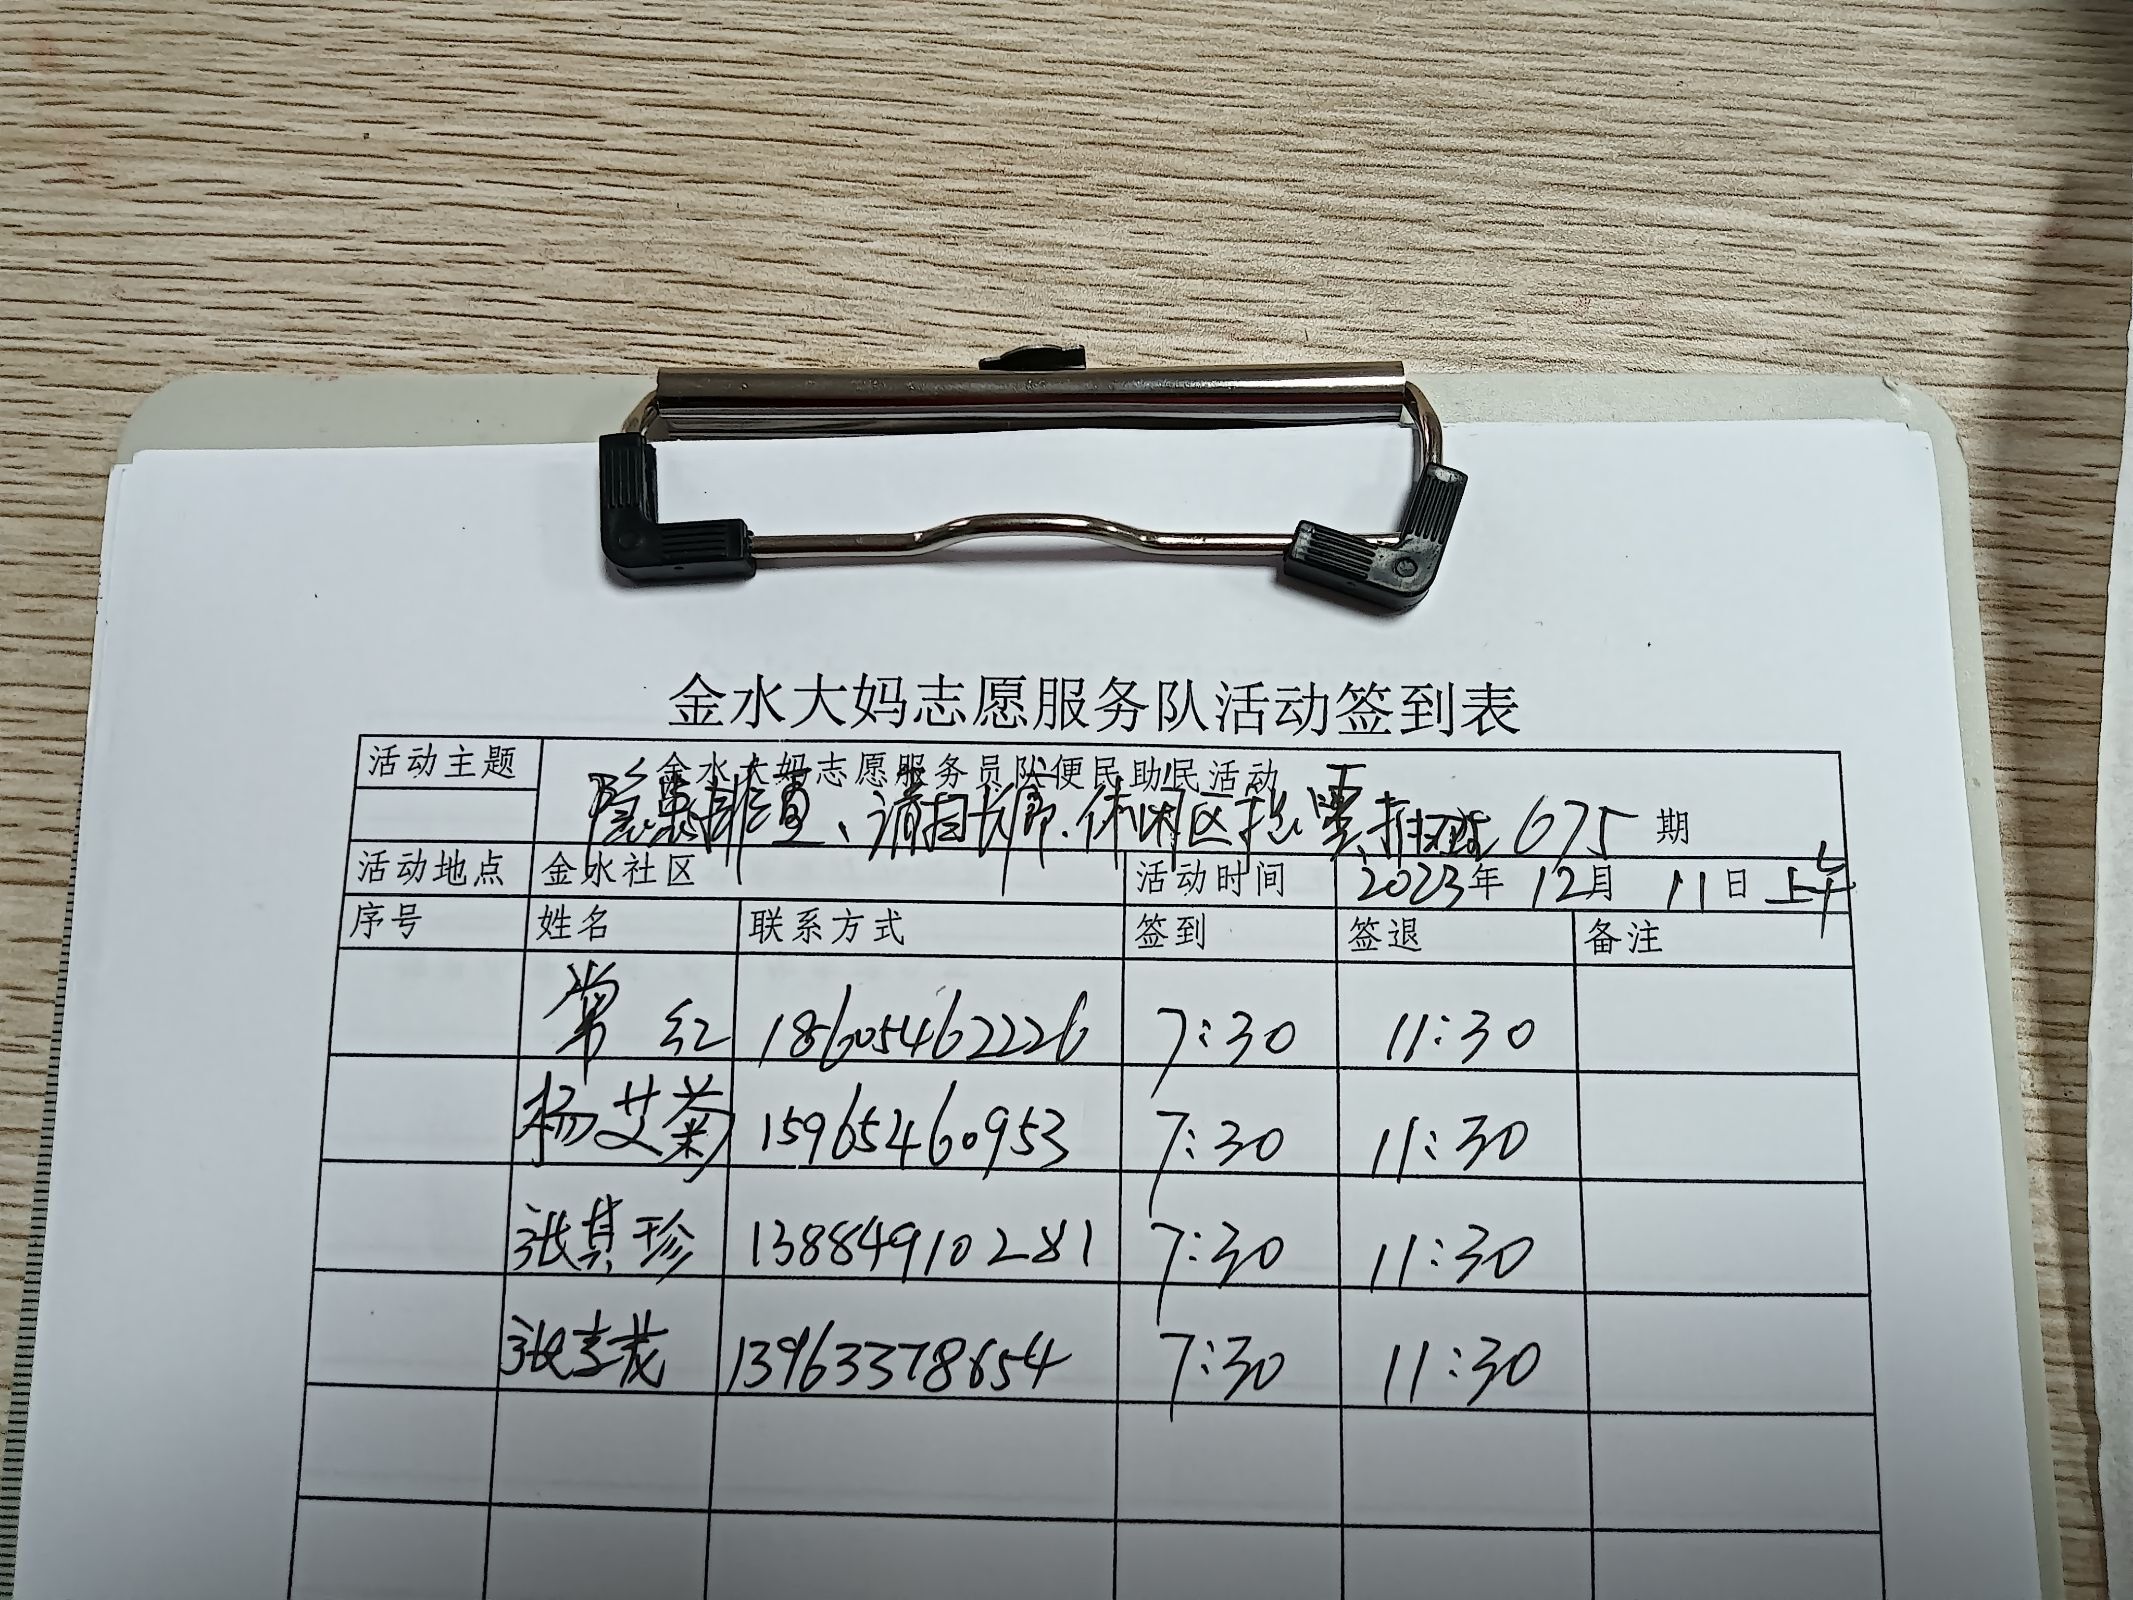 金水大妈志愿服务队活动签到表
活动主题 金水大妈志愿服务员队便民助民活动
隐患排查、清扫长廊.休闲区 675期
活动地点 金水社区 活动时间 2023年 12月 11日 上午
序号 姓名 联系方式 签到 签退 备注
常红 18605462226 7:30 11:30
杨艾菊 15965460953 7:30 11:30
张其珍 13884910281 7:30 11:30
张孝茂 13963378654 7:30 11:30